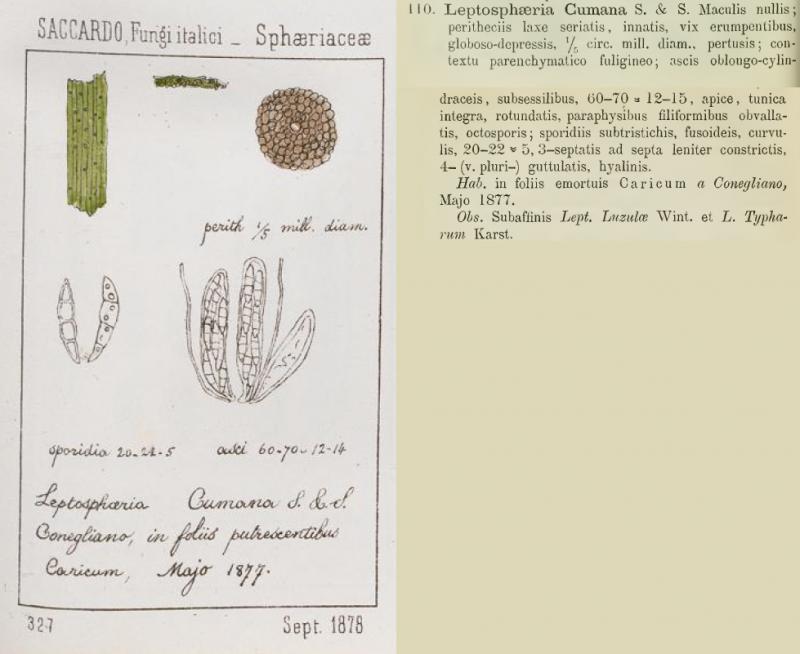 SACCARDO, Fungi italici _ Sphæriaceæ
perith 1/5 mill. diam.
sporidia 20-22-5 asci 60-70-12-14
Leptosphæria Cumana S. & S.
Conegliano, in foliis putrescentibus
Caricum, Majo 1877.
327 Sept. 1878
110. Leptosphæria Cumana S. & S. Maculis nullis;
peritheciis laxe seriatis, innatis, vix erumpentibus,
globoso-depressis, 1/5 circ. mill. diam., pertusis; con-
textu parenchymatico fuligineo; ascis oblongo-cylin-
draceis, subsessilibus, 60–70 ≈ 12–15, apice, tunica
integra, rotundatis, paraphysibus filiformibus obvalla-
tis, octosporis; sporidiis subtristichis, fusoideis, curvu-
lis, 20–22 ≈ 5, 3–septatis ad septa leniter constrictis,
4– (v. pluri–) guttulatis, hyalinis.
Hab. in foliis emortuis Caricum a Conegliano,
Majo 1877.
Obs. Subaffinis Lept. Luzulæ Wint. et L. Typha-
rum Karst.